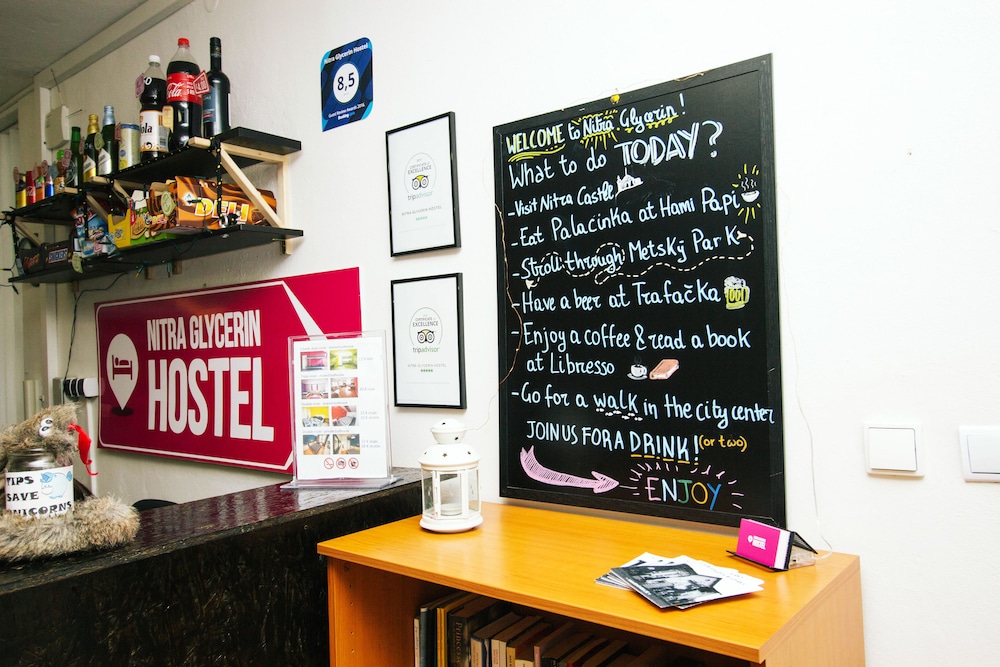 Nitra Glycerin Hostel
8,5
Cola
Coca-Cola
DELI
NITRA GLYCERIN
HOSTEL
CERTIFICATE of
EXCELLENCE
tripadvisor
NITRA GLYCERIN HOSTEL
CERTIFICATE of
EXCELLENCE
tripadvisor
NITRA GLYCERIN HOSTEL
WELCOME to Nitra Glycerin!
What to do TODAY?
-Visit Nitra Castle
-Eat Palacinka at Hami Papi
-Stroll through Metský Park
-Have a beer at Trafačka
-Enjoy a coffee & read a book
at Libresso
-Go for a WALK in the city center
JOIN US FOR A DRINK! (or two)
ENJOY
TIPS
SAVE
UNICORNS
HOSTEL